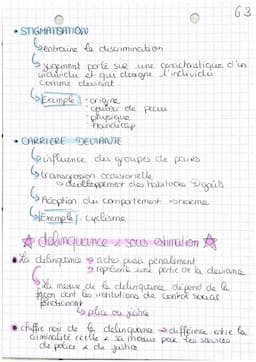 63
• STIGMATISATION
↳ entraine la discrimination
↳ jugement porté sur une caractéristique d'un
individu et qui désigne l'individu
comme déviant
↳ Exemple : - origine
- couleur de peau
- physique
- handicap
• CARRIERE DEVIANTE
↳ influence des groupes de paires
↳ transgression occasionelle
→ développement des habitudes & goûts
↳ Adoption du comportement
↳ Exemple : cyclisme
☆ délinquance & sous estimation ☆
• La délinquance → actes punis pénalement
→ représente une partie de la déviance
↳ La mesure de la délinquance dépend de la
façon dont les institutions de contrôle social
fonctionnent
↳ police ou justice
• chiffre noir de la délinquance → différence entre la
criminalité réelle & sa mesure par les services
de police & de justice